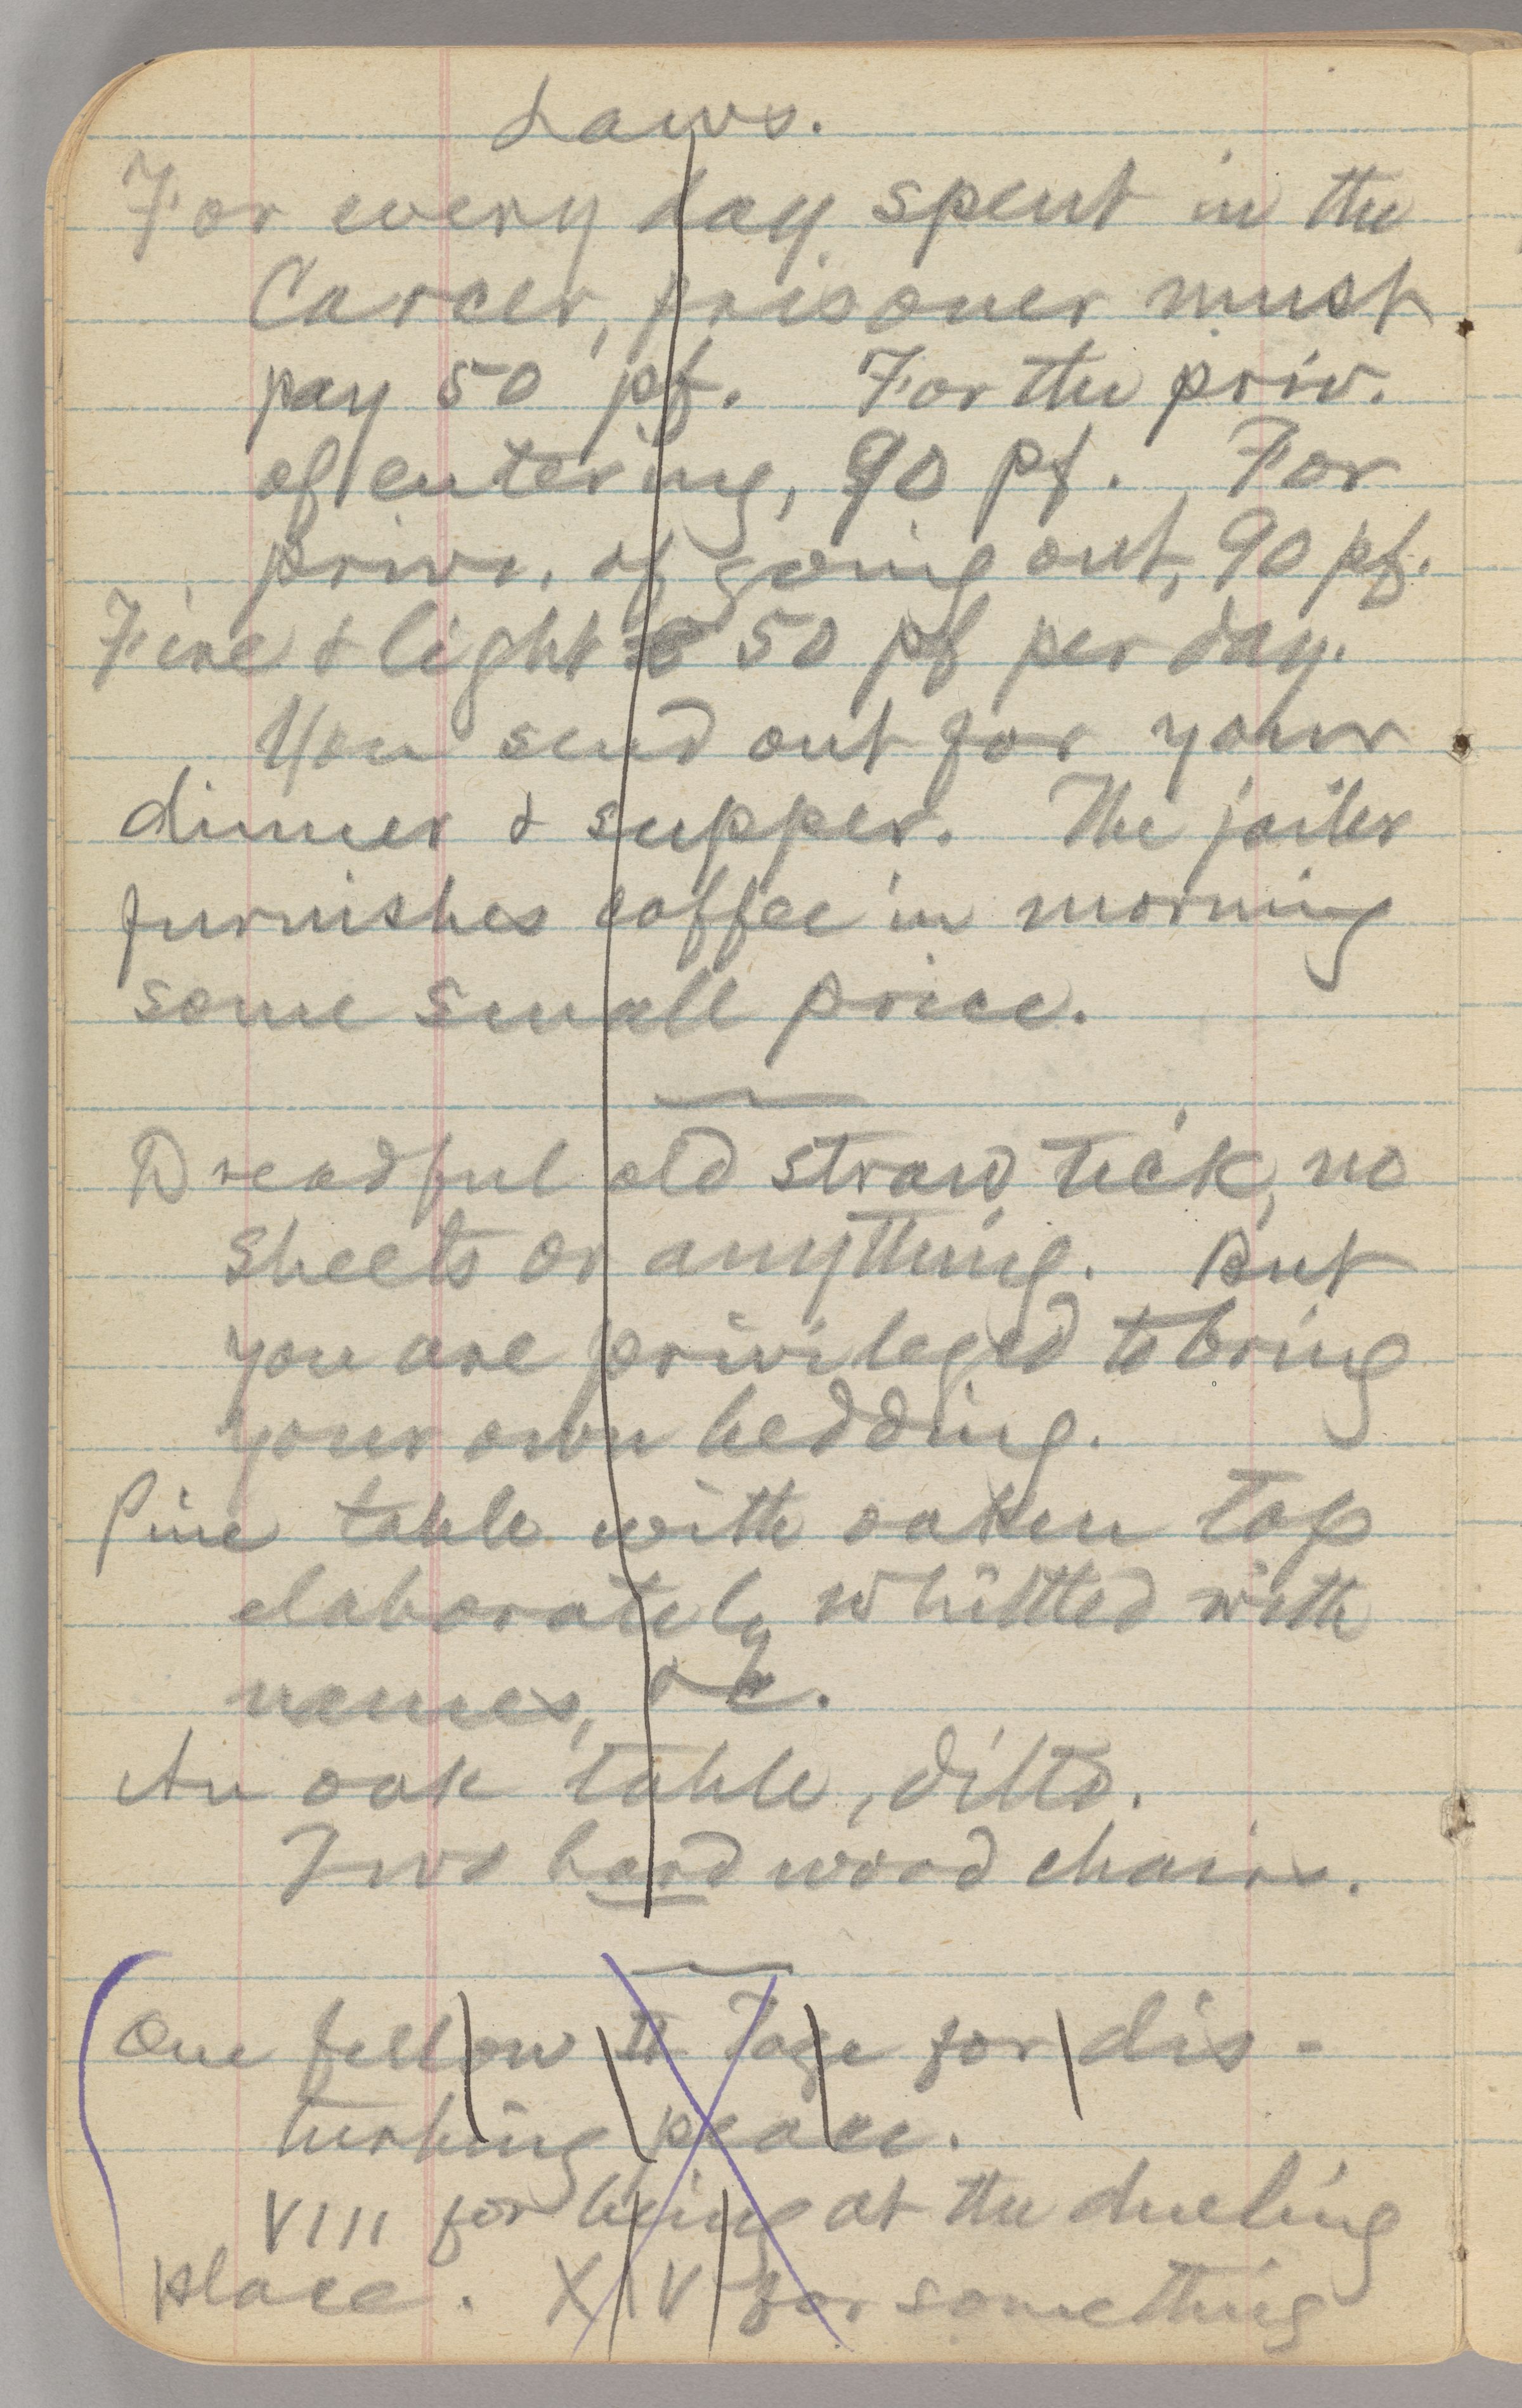 Laws.
For every day spent in the
Carcer, prisoner must
pay 50 pf. For the priv.
of entering, 90 pf. For
priv. of going out, 90 pf.
Fire & light 50 pf per day.
You send out for your
dinner & supper. The jailer
furnishes coffee in morning
some small price.
Dreadful old straw tick, no
sheets or anything. But
you are privileged to bring
your own bedding.
Pine table with oaken top
elaborately whittled with
names, &c.
An oak table, ditto.
Two hard wood chairs.
One fellow II Tage for dis-
turbing peace.
VIII for being at the dueling
place. XIV for something